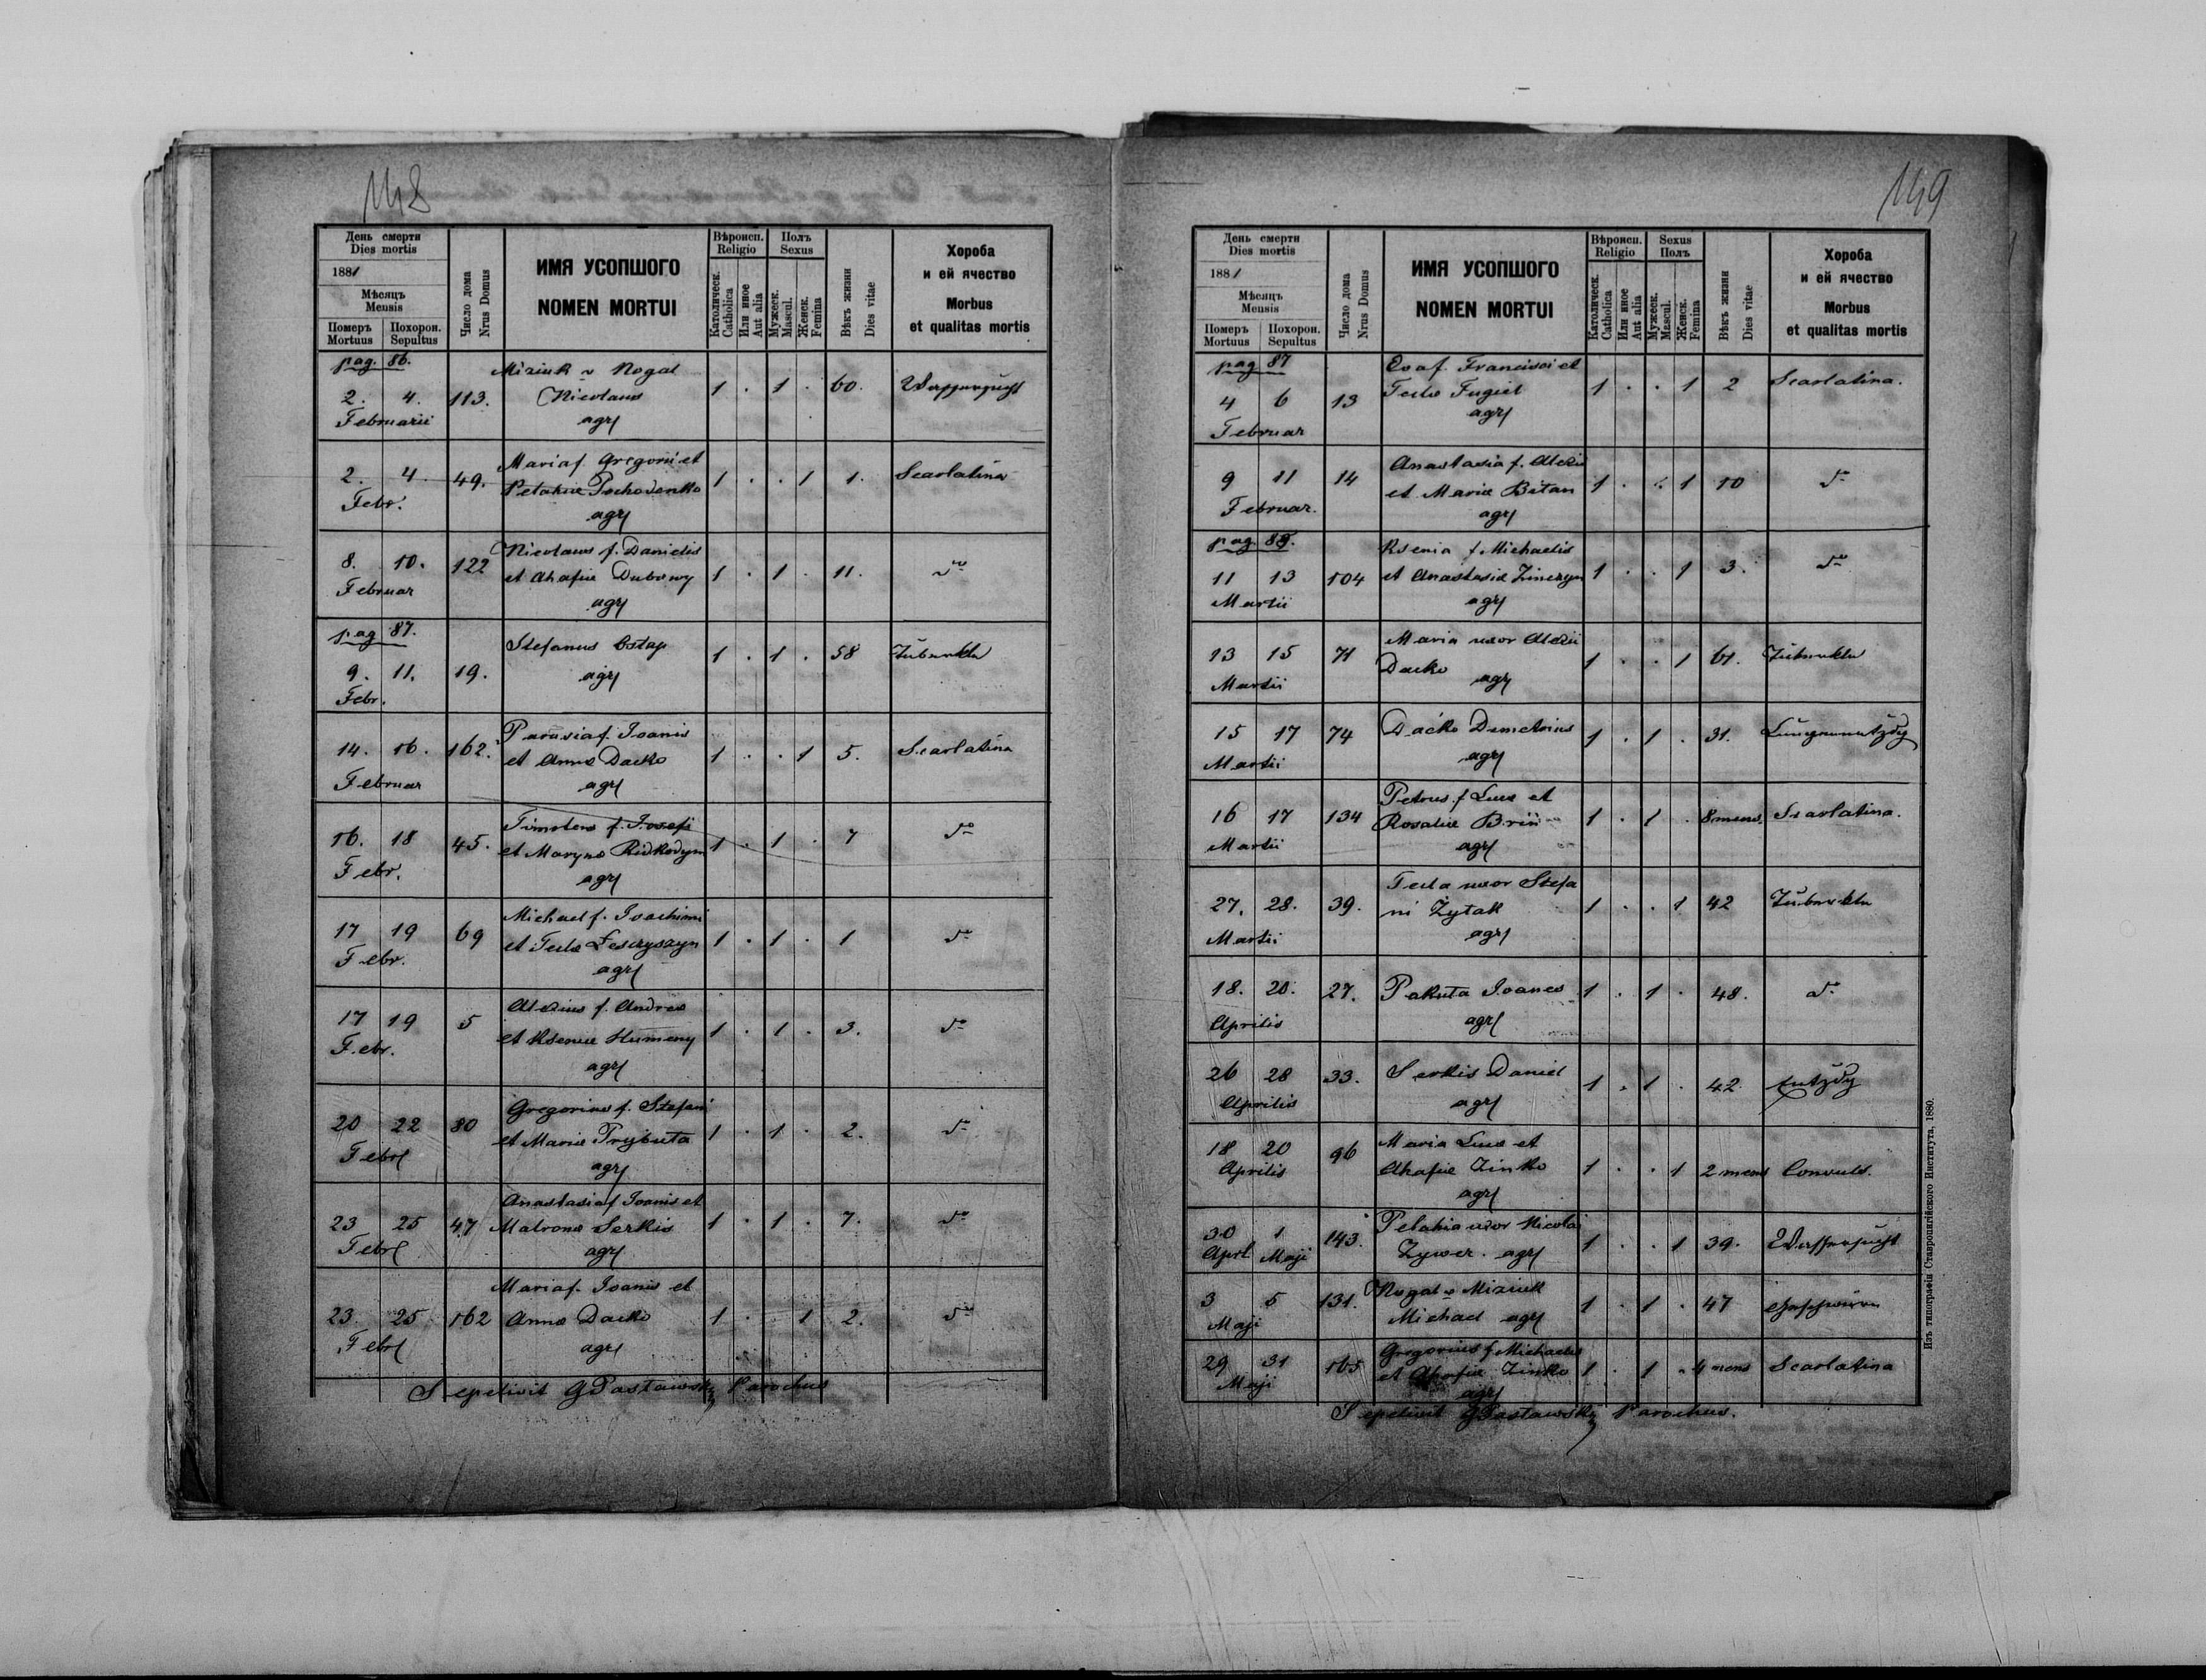 148
День смерти
Dies mortis
1881
Мѣсяцъ
Mensis
Померъ Похорон.
Mortuus Sepultus
Число дома
Nrus Domus
ИМЯ УСОПШОГО
NOMEN MORTUI
Вѣроисп.
Religio
Католическ.
Catholica
Или иное
Aut alia
Полъ
Sexus
Мужеск.
Mascul.
Женск.
Femina
Вѣкъ жизни
Dies vitae
Хороба
и ей ячество
Morbus
et qualitas mortis
pag. 86.
Miziuk v Nogal
2. 4. 113. Nicolaus 1 . 1 . 60. Wassersucht
Februarii agr
Maria f. Gregorii et
2. 4. 49. Pelahiae Pochodenko 1 . . 1 1. Scarlatina
Febr. agr
Nicolaus f. Danielis
8. 10. 122 et Ahafiae Dubowy 1 . 1 . 11. dto
Februar agr
pag 87.
Stefanus Ostap
9. 11. 19. agr 1 . 1 . 58
Febr.
Parasia f. Joanis
14. 16. 162. et Anna Dacko 1 . . 1 5. Scarlatina
Februar agr
Timoteus f. Josefi
16. 18 45. et Maryna Ridkodym 1 . 1 . 7 do
Febr. agr
Michael f. Joachimi
17 19 69 et Tecla Leszczyszyn 1 . 1 . 1 do
Febr. agr
Alexius f. Andrea
17 19 5 et Kseniae Humeny 1 . 1 . 3. do
Febr. agr
Gregorius f. Stefani
20 22 80 et Maria Prybuta 1 . 1 . 2. do
Febr agr
Anastasia f Joanis et
23 25 47 Matrona Serkis 1 . 1 . 7. do
Febr agr
Maria f. Joanis et
23. 25 162 Anna Dacko 1 . 1 2. do
Febr agr
Sepelivit GPastawsky Parochus
149
День смерти
Dies mortis
1881
Мѣсяцъ
Mensis
Померъ Похорон.
Mortuus Sepultus
Число дома
Nrus Domus
ИМЯ УСОПШОГО
NOMEN MORTUI
Вѣроисп.
Religio
Католическ.
Catholica
Или иное
Aut alia
Sexus
Полъ
Мужеск.
Mascul.
Женск.
Femina
Вѣкъ жизни
Dies vitae
Хороба
и ей ячество
Morbus
et qualitas mortis
pag 87
Eva f. Francisci et
4 6 13 Tecla Fugiel 1 . . 1 2 Scarlatina.
Februar agr
Anastasia f. Alexii
9 11 14 et Maria Bitan 1 . . 1 10 do
Februar. agr
pag. 88.
Ksenia f Michaelis
11 13 104 et Anastasia Zinczyn 1 . . 1 3. do
Martii agr
Maria uxor Alexii
13 15 71 Dacko 1 . . 1 61.
Martii agr
15 17 74 Dacko Demetrius 1 . 1 . 31.
Martii agr
Petrus f Luca et
16 17 134 Rosaliae 1 . 1 . 8 mens. Scarlatina.
Martii agr
Tecla uxor Stefa
27. 28. 39. ni Żytak 1 . . 1 42
Martii agr
18. 20. 27. Pakuta Joanes 1 . 1 . 48. do
Aprilis agr
26 28 33. Serkis Daniel 1 . 1 . 42.
Aprilis agr
Maria Luca et
18 20 96 Ahafiae Zinko 1 . . 1 2 mens Convuls.
Aprilis agr
Pelahia uxor Nicolai
30 1 143. Zywer. agr 1 . . 1 39. Wassersucht
Aprl. Maji
Nogal v Miziuk
3 5 131. Michael agr 1 . 1 . 47
Maji
Gregorius f Michaelis
29 31 165 et Ahafiae Zinko 1 . 1 . 4 mens Scarlatina
Maji agr
Sepelivit GPastawsky Parochus.
Изъ типографіи Ставропигійского Института. 1880.